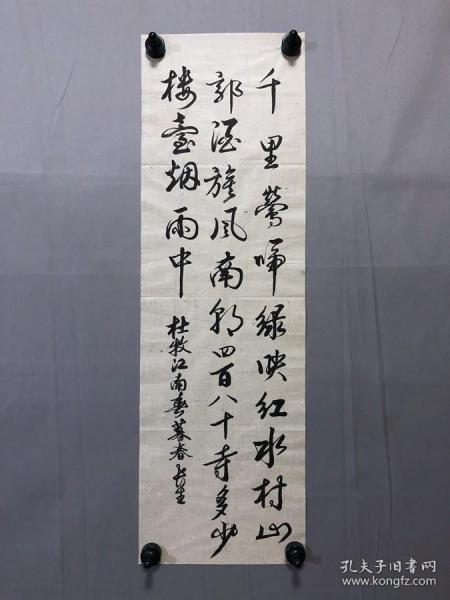 千里莺啼绿映红水村山
郭酒旗风南朝四百八十寺多少
楼台烟雨中
杜牧江南春暮春长生
孔夫子旧书网
www.kongfz.com